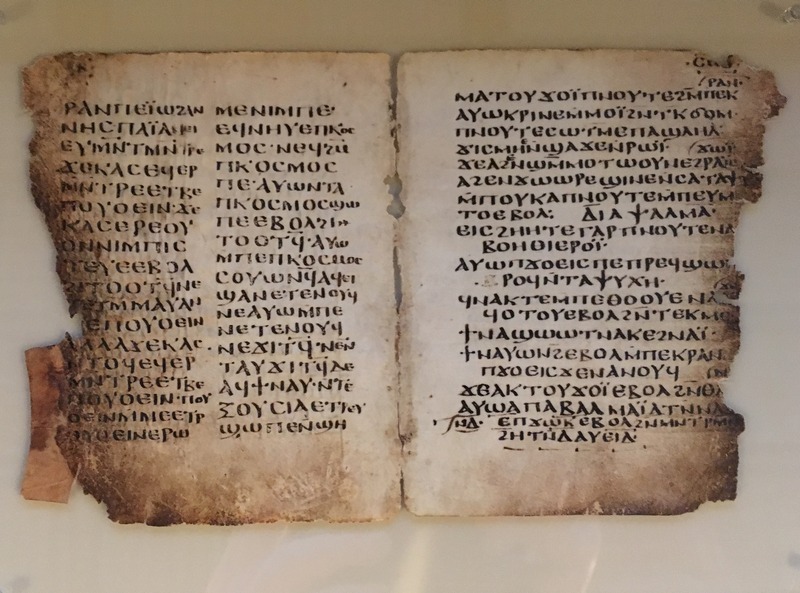 ⲣⲁⲛⲡⲉⲓ̈ⲱϩⲁⲛ
ⲛⲏⲥⲡⲁⲓ̈ⲁϥⲉⲓ
ⲉⲩⲙⲛ̄ⲧⲙⲛ̄ⲧⲣⲉ
ϫⲉⲕⲁⲥⲉϥⲉⲣ
ⲙⲛⲧⲣⲉⲉⲧⲃⲉ
ⲡⲟⲩⲟⲉⲓⲛ·ϫⲉ
ⲕⲁⲥⲉⲣⲉⲟⲩ
ⲟⲛⲛⲓⲙⲡⲓⲥ
ⲧⲉⲩⲉⲉⲃⲟⲗ
ϩⲓⲧⲟⲟⲧϥ̄ⲛⲉ
ⲡⲉⲧⲙⲙⲁⲩⲁⲛ
ⲡⲉⲡⲟⲩⲟⲉⲓⲛ
ⲁⲗⲗⲁϫⲉⲕⲁⲥ·
ⲛⲧⲟϥⲉϥⲉⲣ
ⲙⲛⲧⲣⲉⲉⲧⲃⲉ
ⲡⲟⲩⲟⲉⲓⲛ·ⲡⲟⲩ
ⲟⲉⲓⲛⲙⲙⲉⲉⲧⲣ
ⲟⲩⲟⲉⲓⲛⲉⲣⲱ
ⲙⲉⲛⲓⲙⲡⲉ·
ⲉϥⲛⲏⲩⲉⲡⲕⲟⲥ
ⲙⲟⲥ·ⲛⲉϥϩⲙ̄
ⲡⲕⲟⲥⲙⲟⲥ
ⲡⲉ·ⲁⲩⲱⲛⲧⲁ
ⲡⲕⲟⲥⲙⲟⲥϣⲱ
ⲡⲉⲉⲃⲟⲗϩⲓⲛ
ⲧⲟⲟⲧϥ̄·ⲁⲩⲱ
ⲙⲡⲉⲡⲕⲟⲥⲙⲟⲥ
ⲥⲟⲩⲱⲛϥ̄ⲁϥⲉⲓ
ϣⲁⲛⲉⲧⲉⲛⲟⲩϥ
ⲛⲉⲁⲩⲱⲙⲡⲉ
ⲛⲉⲧⲉⲛⲟⲩϥ
ⲛⲉϫⲓⲧϥ̄·ⲛⲉⲛ
ⲧⲁⲩϫⲓⲧϥ̄ⲇⲉ
ⲁϥϯⲛⲁⲩ·ⲛⲧⲉ
ⲝⲟⲩⲥⲓⲁⲉⲧⲣⲉⲩ
ϣⲱⲡⲉⲛϣⲏ
ⲣⲁⲛ·
ⲙⲁⲧⲟⲩϫⲟⲓ̈ⲡⲛⲟⲩⲧⲉϩⲙ̄ⲡⲉⲕ
ⲁⲩⲱⲕⲣⲓⲛⲉⲙⲙⲟⲓ̈ϩⲛⲧⲕϭⲟⲙ
ⲡⲛⲟⲩⲧⲉⲥⲱⲧⲙⲉⲡⲁϣⲗⲏⲗ
ϫⲓⲥⲙⲏⲛ̄ϣⲁϫⲉⲛⲣⲱⲓ̈ ϫⲱⲓ̈
ϫⲉⲁϩⲛ̄ϣⲙ̄ⲙⲟⲧⲱⲟⲩⲛⲉϩⲣⲁⲓ̈
ⲁϩⲉⲛϫⲱⲱⲣⲉϣⲓⲛⲉⲛⲥⲁⲧⲁⲯ
ⲙ̄ⲡⲟⲩⲕⲁⲡⲛⲟⲩⲧⲉⲙⲡⲉⲩⲙ
ⲧⲟⲉⲃⲟⲗ: ⲇⲓⲁⲯⲁⲗⲙⲁ·
ⲉⲓⲥϩⲏⲏⲧⲉⲅⲁⲣⲡⲛⲟⲩⲧⲉⲛⲁ
ⲃⲟⲏⲑⲓⲉⲣⲟⲓ̈·
ⲁⲩⲱⲡϫⲟⲉⲓⲥⲡⲉⲡⲣⲉϥϣⲱⲡ
ⲉⲣⲟϥⲛ̄ⲧⲁⲯⲩⲭⲏ·
ϥⲛⲁⲕⲧⲉⲙⲡⲉⲑⲟⲟⲩⲉⲛⲁ
ϥⲟⲧⲟⲩⲉⲃⲟⲗϩⲛ̄ⲧⲉⲕⲙⲉ
ϯⲛⲁϣⲱⲱⲧⲛⲁⲕⲉϩⲛⲁⲓ̈·
ϯⲛⲁⲟⲩⲱⲛϩⲉⲃⲟⲗⲙⲡⲉⲕⲣⲁⲛ
ⲡϫⲟⲉⲓⲥϫⲉⲛⲁⲛⲟⲩϥ
ϫⲉⲁⲕⲧⲟⲩϫⲟⲓ̈ⲉⲃⲟⲗϩⲛⲑⲗ
ⲁⲩⲱⲁⲡⲁⲃⲁⲗⲙⲁⲓ̈ⲁⲧⲛⲛⲁ
ⲛ̄ⲇ· ⲉⲡϫⲱⲕⲉⲃⲟⲗϩⲛⲛⲉⲥⲙⲟⲩ
ϩⲏⲧⲛ̄ⲇⲁⲩⲉⲓⲇ·